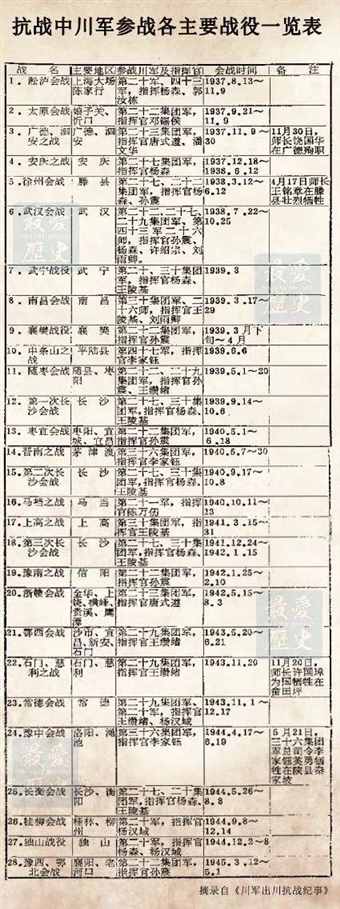 抗战中川军参战各主要战役一览表
战名 主要地区 参战川军及指挥官 会战时间 备注
1．淞沪会战 上海大场陈家行 第二十军、四十三军，指挥官杨森、郭汝栋 1937.8.13～11.9
2．太原会战 娘子关、忻口 第二十二集团军，指挥官邓锡侯 1937.9.21～11.9
3．广德、泗安之战 广德、泗安 第二十三集团军，指挥官唐式遵、潘文华 1937.11.9～30 11月30日，师长饶国华在广德殉职
4．安庆之战 安庆 第二十七集团军，指挥官杨森 1937.12.18～1938.6.12
5．徐州会战 滕县 第二十七、二十二集团军，指挥官杨森、孙震 1938.3.12～6.12 4月17日师长王铭章在滕县壮烈牺牲
6．武汉会战 武汉 第二十二、二十七、二十九集团军、第四十三军二十六师，指挥官孙震、杨森、许绍宗、刘雨卿。 1938.7.22～10.25
7．武宁战役 武宁 第二十、三十集团军，指挥官杨森、王陵基 1939.3
8．南昌会战 南昌 第三十集团军、二十六师，指挥官王陵基、刘雨卿 1939.3.17～29
9．襄樊战役 襄樊 第二十二集团军，指挥官孙震 1939.3月下旬～4月
10．中条山之战 平陆县 第四十七军，指挥官李家钰 1939.6.6
11．随枣会战 随县、枣阳 第二十二、二十九集团军，指挥官孙震、王缵绪 1939.5.1～20
12．第一次长沙会战 长沙 第二十七、三十集团军，指挥官杨森、王陵基 1939.9.14～10.6
13．枣宜会战 枣阳、宜城、宜昌 第二十二集团军，指挥官孙震 1940.5.1～6.18
14．晋南之战 茅津渡 第三十六集团军，指挥官李家钰 1940.5.7～20
15．第二次长沙会战 长沙 第二十七、三十集团军，指挥官杨森、王陵基 1940.9.17～10.8
16．马垱之战 马当 第二十一军，指挥官陈万仞 1940.10.11～13
17．上高之战 上高 第三十集团军，指挥官王陵基 1941.3.15～31
18．第三次长沙会战 长沙 第二十七、三十集团军，指挥官杨森、王陵基 1941.12.24～1942.1.15
19．豫南之战 信阳 第二十二集团军，指挥官孙震 1942.1.25～2.10
20．浙赣会战 金华、上饶、横峰、贵溪、鹰潭 第二十三集团军，指挥官唐式遵 1942.5.15～8.3
21．鄂西会战 沙市、宜昌、新安、石门 第二十九集团军，指挥官王缵绪 1943.5.20～6.21
22．石门、慈利之战 石门、慈利 第二十九集团军，指挥官王缵绪 1943.11.20 11月20日，师长许国璋为国牺牲在
23．常德会战 常德 第二十九集团军、第二十军，指挥官王缵绪、杨汉域 1943.11.1～12.17
24．豫中会战 洛阳、渑池 第三十六集团军，指挥官李家钰 1944.4.17～6.19 5月21日，三十六集团军总司令李家钰英勇牺牲在陕县秦家坡
25．长衡会战 长沙、衡阳 第二十七、二十集团军，指挥官杨森、王陵基 1944.5.26～8.8
26．桂柳会战 桂林、柳州 第二十军，指挥官杨汉域 1944.9.8～12.14
27．独山战役 独山 第二十军，指挥官杨汉域 1944.12.2～8
28．豫西、鄂北会战 襄阳、老河口 第二十二集团军，指挥官孙震 1945.3.12～5.1
摘录自《川军出川抗战纪事》
最爱历史